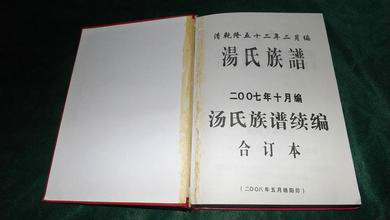 清乾隆五十二年二月编
湯氏族譜
二〇〇七年十月编
汤氏族谱续编
合订本
(二〇〇八年五月绵阳印)